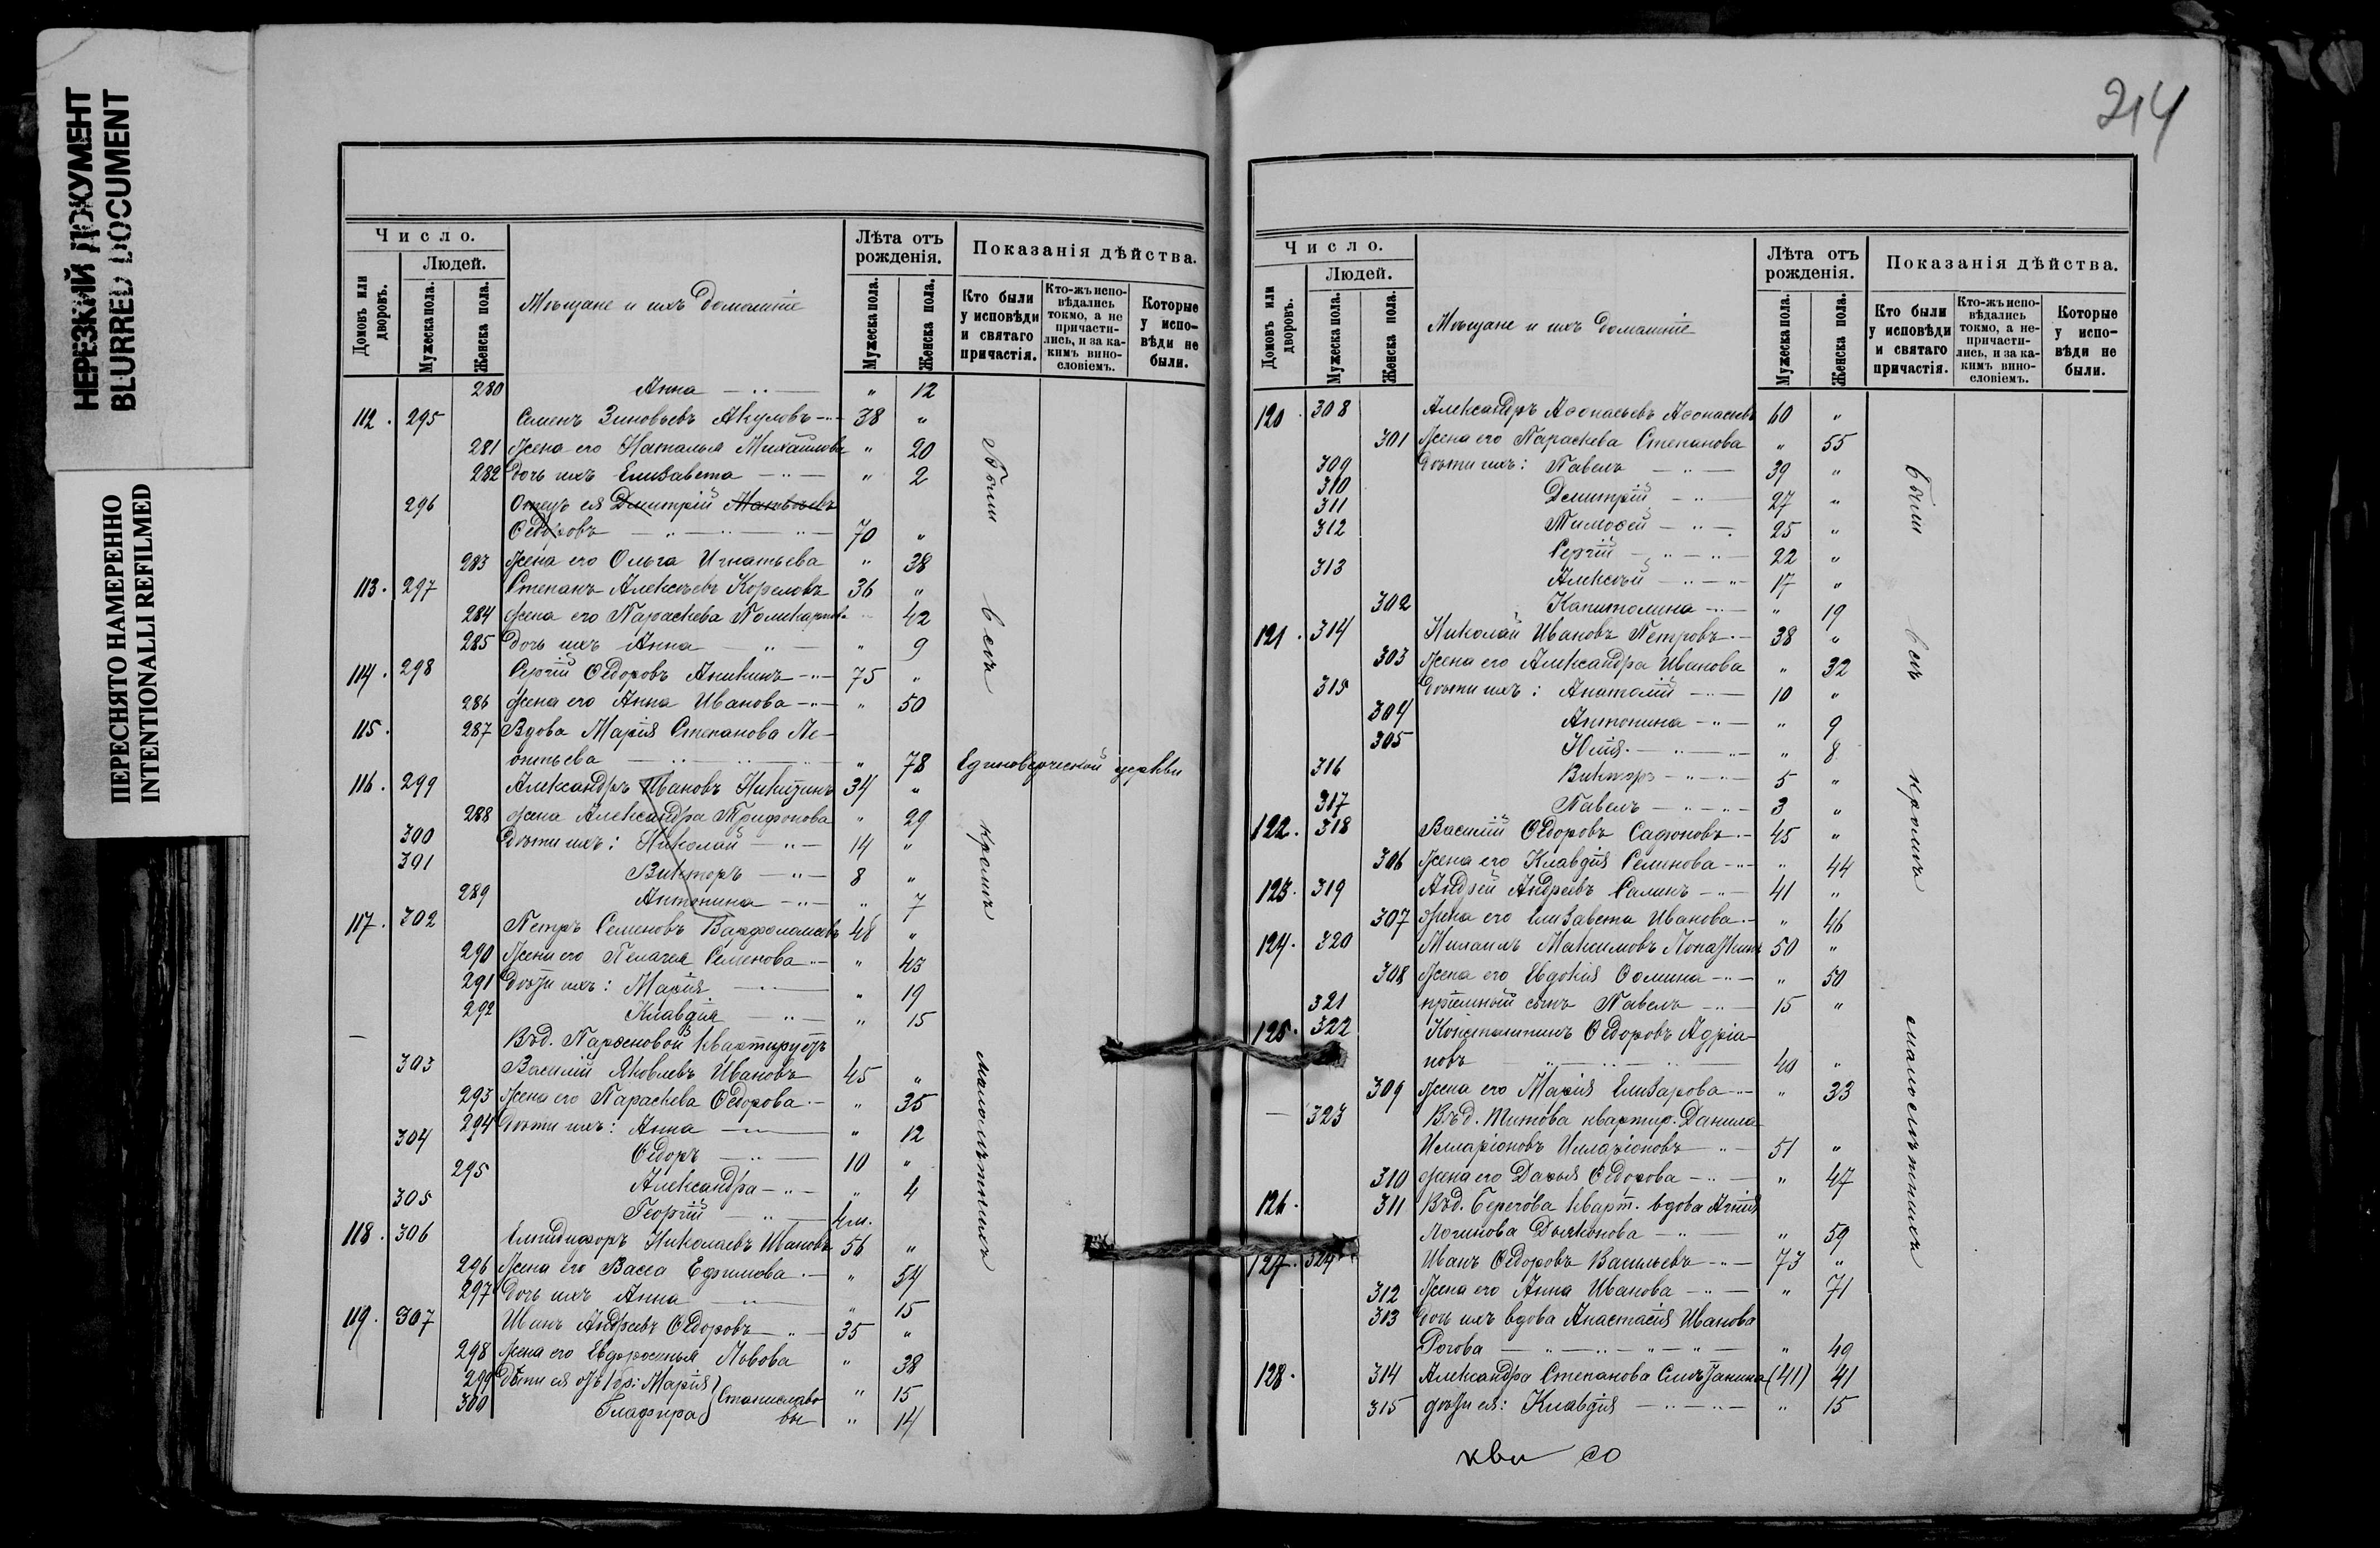 НЕРЕЗКИЙ ДОКУМЕНТ
BLURRED DOCUMENT
ПЕРЕСНЯТО НАМЕРЕННО
INTENTIONALLI REFILMED
Число.
Людей.
Домовъ или дворовъ.
Мужеска пола.
Женска пола.
Мѣщане и ихъ домашніе
Лѣта отъ рожденія.
Мужеска пола.
Женска пола.
Показанія дѣйства.
Кто были у исповѣди и святаго причастія.
Кто-жъ исповѣдались токмо, а не причастились, и за какимъ винословіемъ.
Которые у исповѣди не были.
280 Анна — " — " 12
112. 295 Семенъ Зиновьевъ Акуловъ — " — 38 "
281 Жена его Наталья Михайлова " 20
282 Дочь ихъ Елизавета — " — " 2
296 Отецъ ея Дмитрій Матвѣевъ
Ѳедоровъ — " — " — " — 70 "
283 Жена его Ольга Игнатьева " 38
113. 297 Степанъ Алексѣевъ Кореловъ 36 "
284 Жена его Параскева Поликарпова " 42
285 Дочь ихъ Анна — " — " 9
114. 298 Сергій Ѳедоровъ Аникинъ — " — 75 "
286 Жена его Анна Иванова — " — " 50
115. 287 Вдова Марія Степанова Ле-
онтьева — " — " — " 78 Единоверческой церкви
116. 299 Александръ Ивановъ Никитинъ 34 "
288 Жена Александра Трифонова " 29
300 Дѣти ихъ: Николай — " — 14 "
301 Викторъ — " — 8 "
289 Антонина — " — " 7
117. 302 Петръ Семеновъ Варфоломеевъ 48 "
290 Жена его Пелагея Семенова — " — " 43
291 Дѣти ихъ: Марія — " — " 19
292 Клавдія — " — " 15
— Въ д. Парѳеновой квартируетъ
303 Василій Яковлевъ Ивановъ 45 "
293 Жена его Параскева Ѳедорова — " 35
294 Дѣти ихъ: Анна — " — " 12
304 Ѳедоръ — " — 10 "
295 Александра — " — " 4
305 Георгій — " — 4 м.
118. 306 Елпидифоръ Николаевъ Ивановъ 56 "
296 Жена его Васса Ефимова — " 54
297 Дочь ихъ Анна — " — " 15
119. 307 Иванъ Андреевъ Ѳедоровъ — " — 35 "
298 Жена его Евфросинья Львова " 38
299 Дѣти ея отъ 1 бр: Марія } Станиславо " 15
300 Глафира } вы " 14
Были всѣ кромѣ малолѣтнихъ
214
Число.
Людей.
Домовъ или дворовъ.
Мужеска пола.
Женска пола.
Мѣщане и ихъ домашніе
Лѣта отъ рожденія.
Мужеска пола.
Женска пола.
Показанія дѣйства.
Кто были у исповѣди и святаго причастія.
Кто-жъ исповѣдались токмо, а не-причастились, и за какимъ винословіемъ.
Которые у исповѣди не были.
120. 308 Александръ Аѳонасьевъ Аѳонасьевъ 60 "
301 Жена его Параскева Степанова " 55
309 Дѣти ихъ: Павелъ — " — 39 "
310 Дмитрій — " — 27 "
311 Тимоѳей — " — 25 "
312 Сергій — " — " — 22 "
313 Алексѣй — " — " 17 "
302 Капитолина — " — " 19
121. 314 Николай Ивановъ Петровъ — 38 "
303 Жена его Александра Иванова " 32
315 Дѣти ихъ: Анатолій — " — 10 "
304 Антонина — " — " 9
305 Юлія — " — " — " 8
316 Викторъ — " — " — 5 "
317 Павелъ — " — " — 3 "
122. 318 Василій Ѳедоровъ Сафоновъ — 45 "
306 Жена его Клавдія Семенова — " — " 44
123. 319 Андрей Андреевъ Салинъ — " — 41 "
307 Жена его Елизавета Иванова — " 46
124. 320 Михаилъ Максимовъ Лопаткинъ 50 "
308 Жена его Евдокія Ѳомина — " — " 50
321 пріемный сынъ Павелъ — " — 15 "
125. 322 Константинъ Ѳедоровъ Адріа-
новъ — " — " — 40 "
309 Жена его Марія Елизарова — " — " 33
— 323 Въ д. Титова квартир. Данила
Илларіоновъ Илларіоновъ — " — 51 "
310 Жена его Дарья Ѳедорова — " — " 47
126. 311 Въ д. Берегова кварт. вдова Агнія
Логинова Дьяконова — " — " 59
127. 324 Иванъ Ѳедоровъ Васильевъ — " — 73 "
312 Жена его Анна Иванова — " — " 71
313 Дочь ихъ вдова Анастасія Иванова
Рогова — " — " — " — " — " 49
128. 314 Александра Степанова Смѣтанина (41) 41
315 Дѣти ея: Клавдія — " — " — " 15
Были всѣ кромѣ малолѣтнихъ